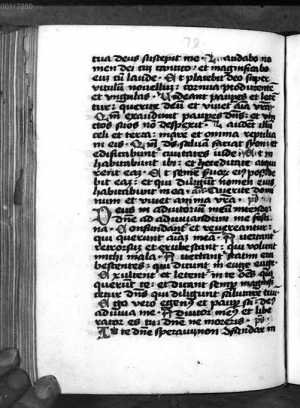 tua deus suscepit me . Laudabo no
men dei cū cantico : et magnificabo
eū in laude . Et placebit deo super
vitulū novellū : cornua producente
et vngulas . Videant pauperes et lete
tur : querite deū et vivet aīa vr̄a
Qm̄ exaudivit paupes dn̄s : et vin
ctos suos nō despexit . Laudēt illū
celi et terra : mare et omnia reptilia
in eis . Qm̄ ds̄ saluā faciet syon : et
edificabunt ciuitates iude . Et in
habitabunt ibi : et hereditate acqui
rent eā . Et semē posside
bit eā : et qui diligūt nomen eius
habitabunt in ea . Querite domi
num et vivet anima vr̄a . ps̄
Deus in adiutoriū meū intende :
dn̄e ad adiuvandum me festi
na . Confundant et reuereantur :
qui querunt aīam meā . Auertant
retrorsū et erubescant : qui volunt
michi mala . Auertant statim eru
bescentes : qui dicunt m̄ euge euge .
Exultent et letent in te ōs qui
querūt te : et dicant semp magnifi
cetur dn̄s qui diligunt salutare tuū .
Ego vero egen⁹ et paup sū : de⁹
adiuua me . Adiutor me⁹ et libe
rator es tu : dn̄e ne moreris . ps̄
In te dn̄e speraui non confundar in